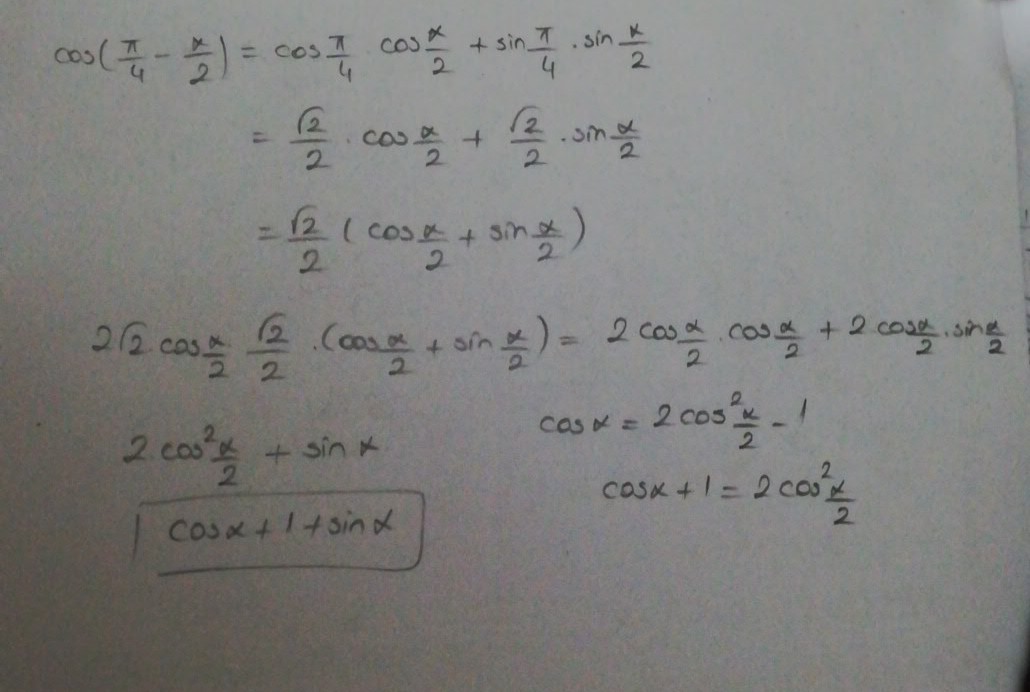 cos(π/4 - α/2) = cos π/4 · cos α/2 + sin π/4 · sin α/2
= √2/2 · cos α/2 + √2/2 · sin α/2
= √2/2 (cos α/2 + sin α/2)
2√2 · cos α/2 · √2/2 · (cos α/2 + sin α/2) = 2 cos α/2 · cos α/2 + 2 cos α/2 · sin α/2
2 cos² α/2 + sin α
cos α + 1 + sin α
cos α = 2 cos² α/2 - 1
cos α + 1 = 2 cos² α/2